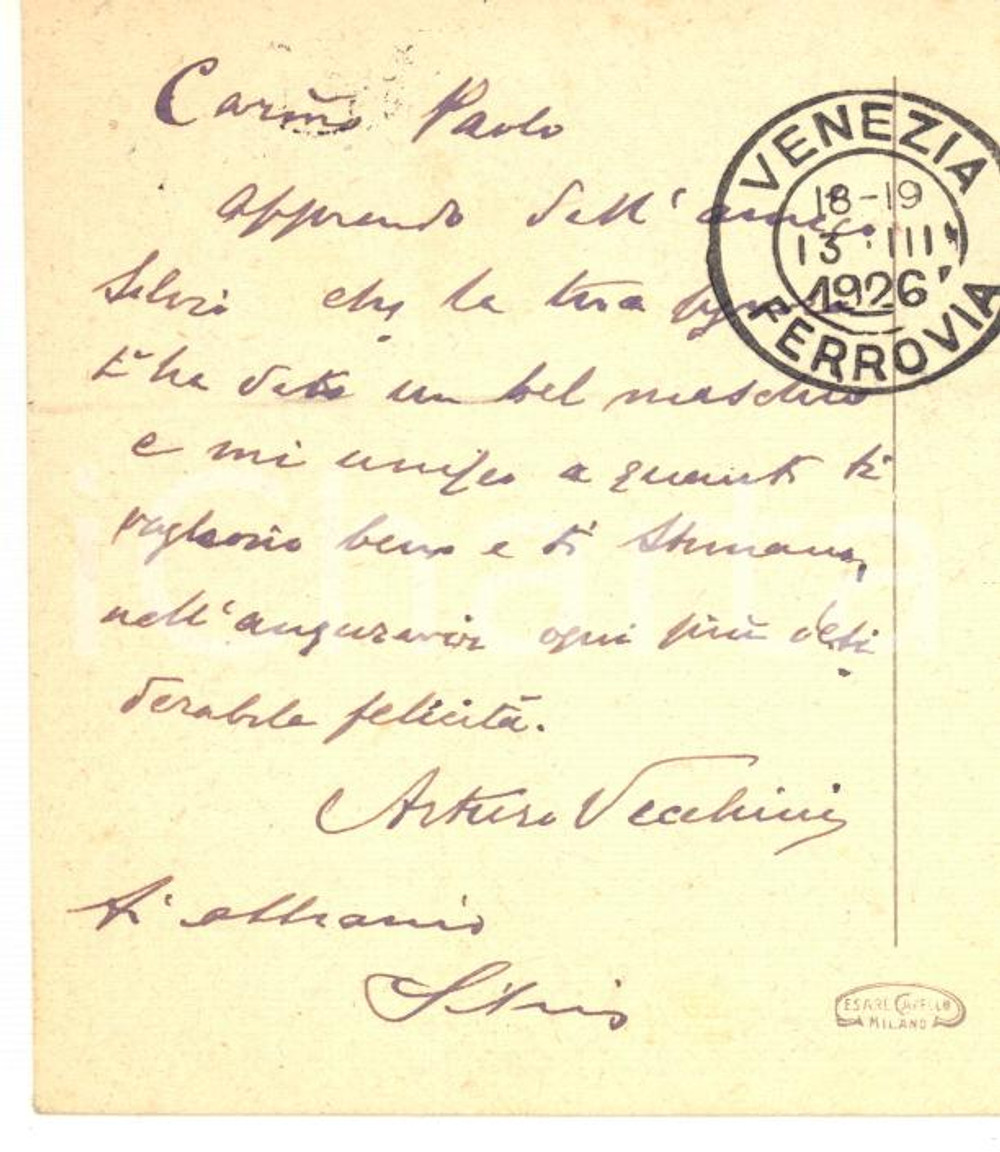 Carino Paolo
apprendo dall' amico
Silvio che la tua signora
t'ha dato un bel maschio
e mi unisco a quanti ti
vogliono bene e ti stimano,
nell'augurarvi ogni più desi
derabile felicità.
Arturo Vecchini
ti abbraccio
Silvio
VENEZIA
18-19
13·III
1926
FERROVIA
CESARE CAPELLO
MILANO
iCharta